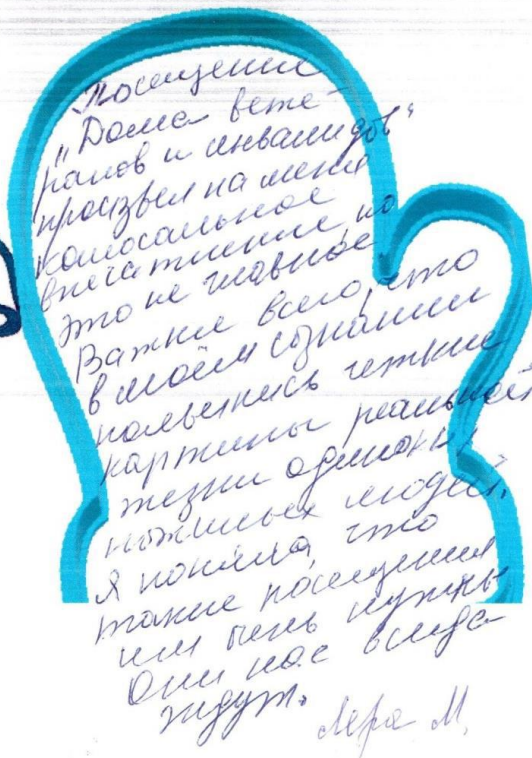 Посещение
"Дома вете-
ранов и инвалидов"
произвел на меня
колосальное
впечатление, но
это не главное
Важне всего, что
в моём сознании
появились четкие
картины реальной
жизни одиноких
пожилых людей.
Я поняла, что
такие посещения
им очень нужны
Они нас всегда
ждут.
Лера М.